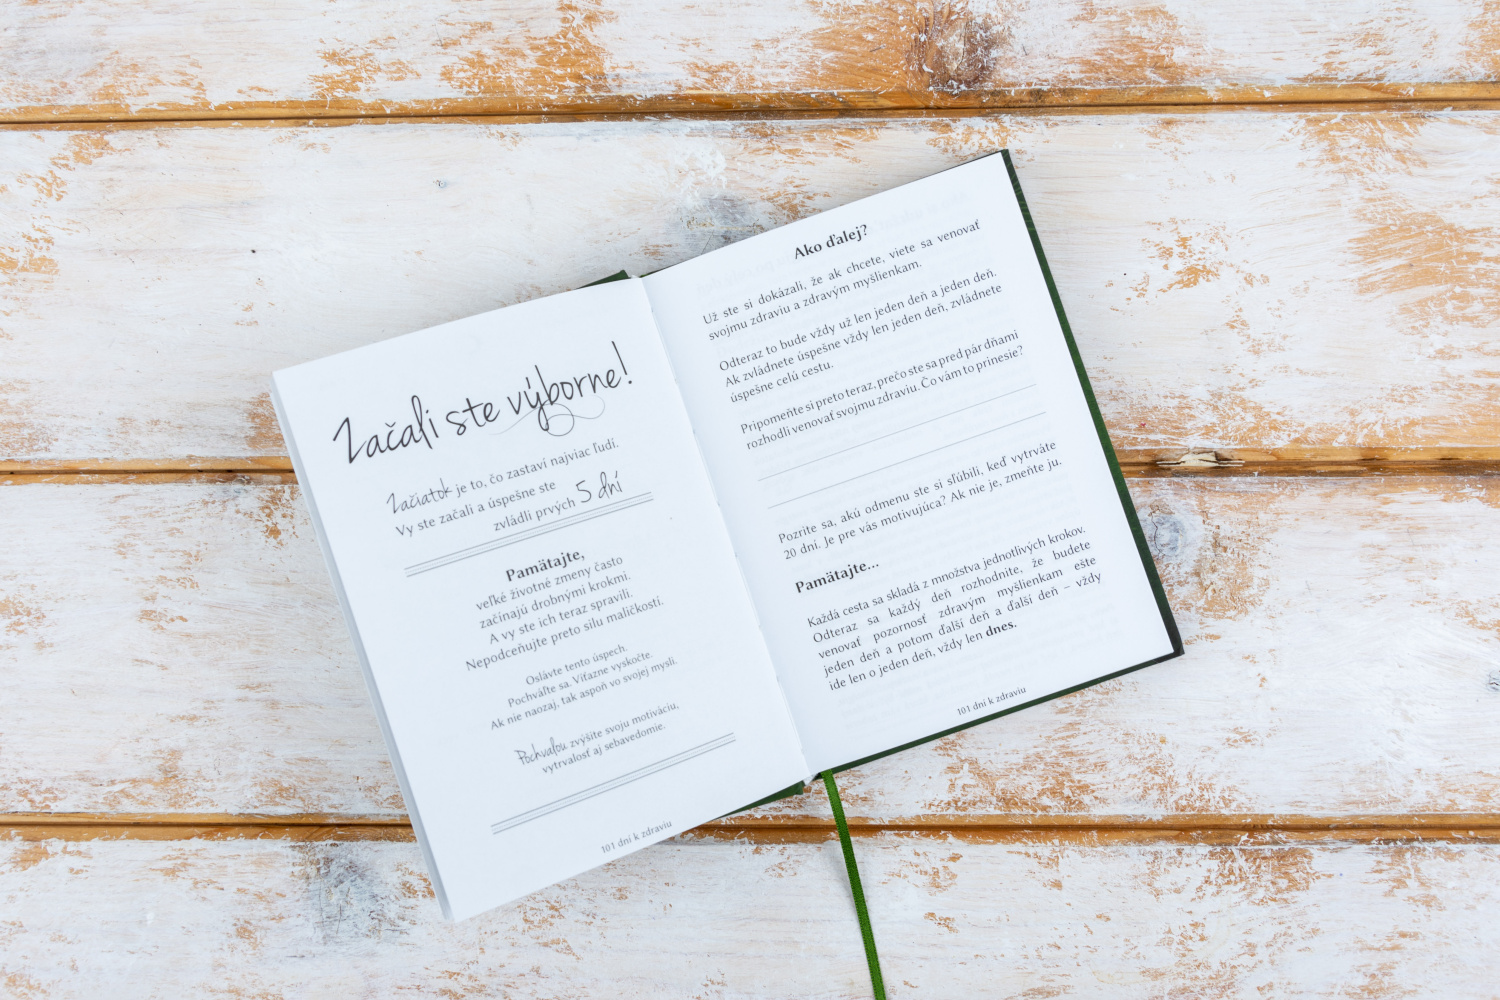 Začali ste výborne!
Začiatok je to, čo zastaví najviac ľudí.
Vy ste začali a úspešne ste
zvládli prvých 5 dní
Pamätajte,
veľké životné zmeny často
začínajú drobnými krokmi.
A vy ste ich teraz spravili.
Nepodceňujte preto silu maličkostí.
Oslávte tento úspech.
Pochváľte sa. Víťazne vyskočte.
Ak nie naozaj, tak aspoň vo svojej mysli.
Pochvalou zvýšite svoju motiváciu,
vytrvalosť aj sebavedomie.
101 dní k zdraviu
Ako ďalej?
Už ste si dokázali, že ak chcete, viete sa venovať
svojmu zdraviu a zdravým myšlienkam.
Odteraz to bude vždy už len jeden deň a jeden deň.
Ak zvládnete úspešne vždy len jeden deň, zvládnete
úspešne celú cestu.
Pripomeňte si preto teraz, prečo ste sa pred pár dňami
rozhodli venovať svojmu zdraviu. Čo vám to prinesie?
Pozrite sa, akú odmenu ste si sľúbili, keď vytrváte
20 dní. Je pre vás motivujúca? Ak nie je, zmeňte ju.
Pamätajte...
Každá cesta sa skladá z množstva jednotlivých krokov.
Odteraz sa každý deň rozhodnite, že budete
venovať pozornosť zdravým myšlienkam ešte
jeden deň a potom ďalší deň a ďalší deň – vždy
ide len o jeden deň, vždy len dnes.
101 dní k zdraviu